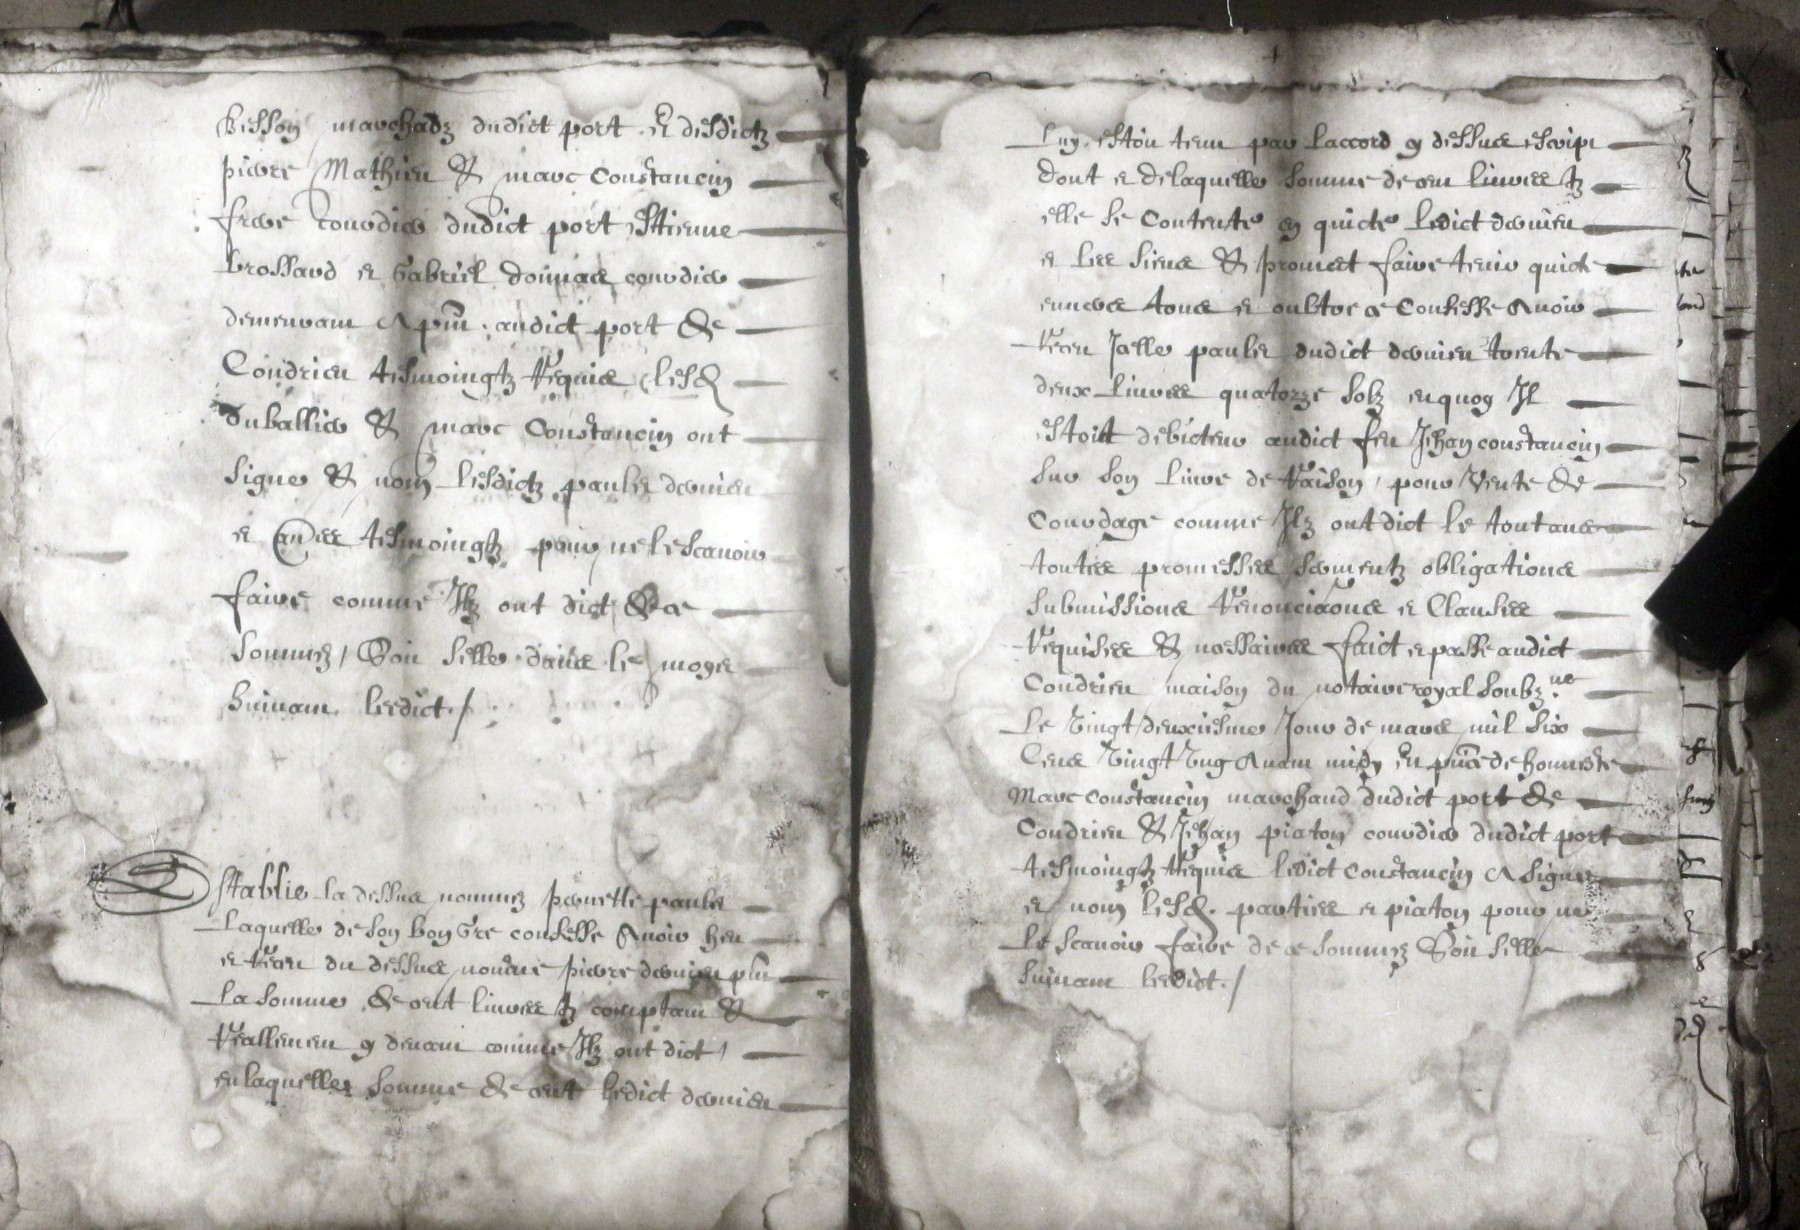 Besson marchadz dudict port et desdictz
pierre Mathieu & marc Constancin
frere courdier dudict port Estienne
brossard et Gabriel courdier
demeurant A pnt audict port de
Condrieu tesmoingtz requis lesd
duballier & marc Constancin ont
signe & nom lesdictz paulet dervieu
et aultres tesmoingtz pour ne le scavoir
faire comme Ilz ont dict de ce
sommez / Soit selle dans le moys
suivant leedict /
Establie la dessus nommez pernette paulet
laquelle de son bon Gre confesse Avoir heu
et receu du dessus nomme pierre dervieu pnt
la somme de cent livres tz comptant &
reallement cy devant comme Ilz ont dict /
en laquelle somme de cent ledict dervieu
luy estoit tenu par laccord cy dessus escript
dont et delaquelle somme de cent livres tz
elle se Contente en quicte ledict dervieu
et les siens & promect faire tenir quicte
envers tous et oultre ce Confesse Avoir
receu Icelle paulet dudict dervieu trente
deux livres quatorze solz en quoy Il
estoit debicteur audict feu Jehan constancin
sur son livre de raison / pour Vente de
Courdage comme Ilz ont dict le tout avec
toutes promesses sermentz obligations
submissions renonciaons et Clauses
requises & nessaires faict et passe audict
Condrieu maison du notaire royal soubz.ne
Le Vingt deuxiesme Jour de mars mil six
Cens Vingt Ung Avant midy En pnce de honneste
Marc Constancin marchand dudict port de
Condrieu & Jehan piaton courdier dudict port
tesmoingtz requis ledict Constancin A signe
et nom lesd. parties et piaton pour ne
le scavoir faire de ce sommez Soit selle
suivant leedict. /